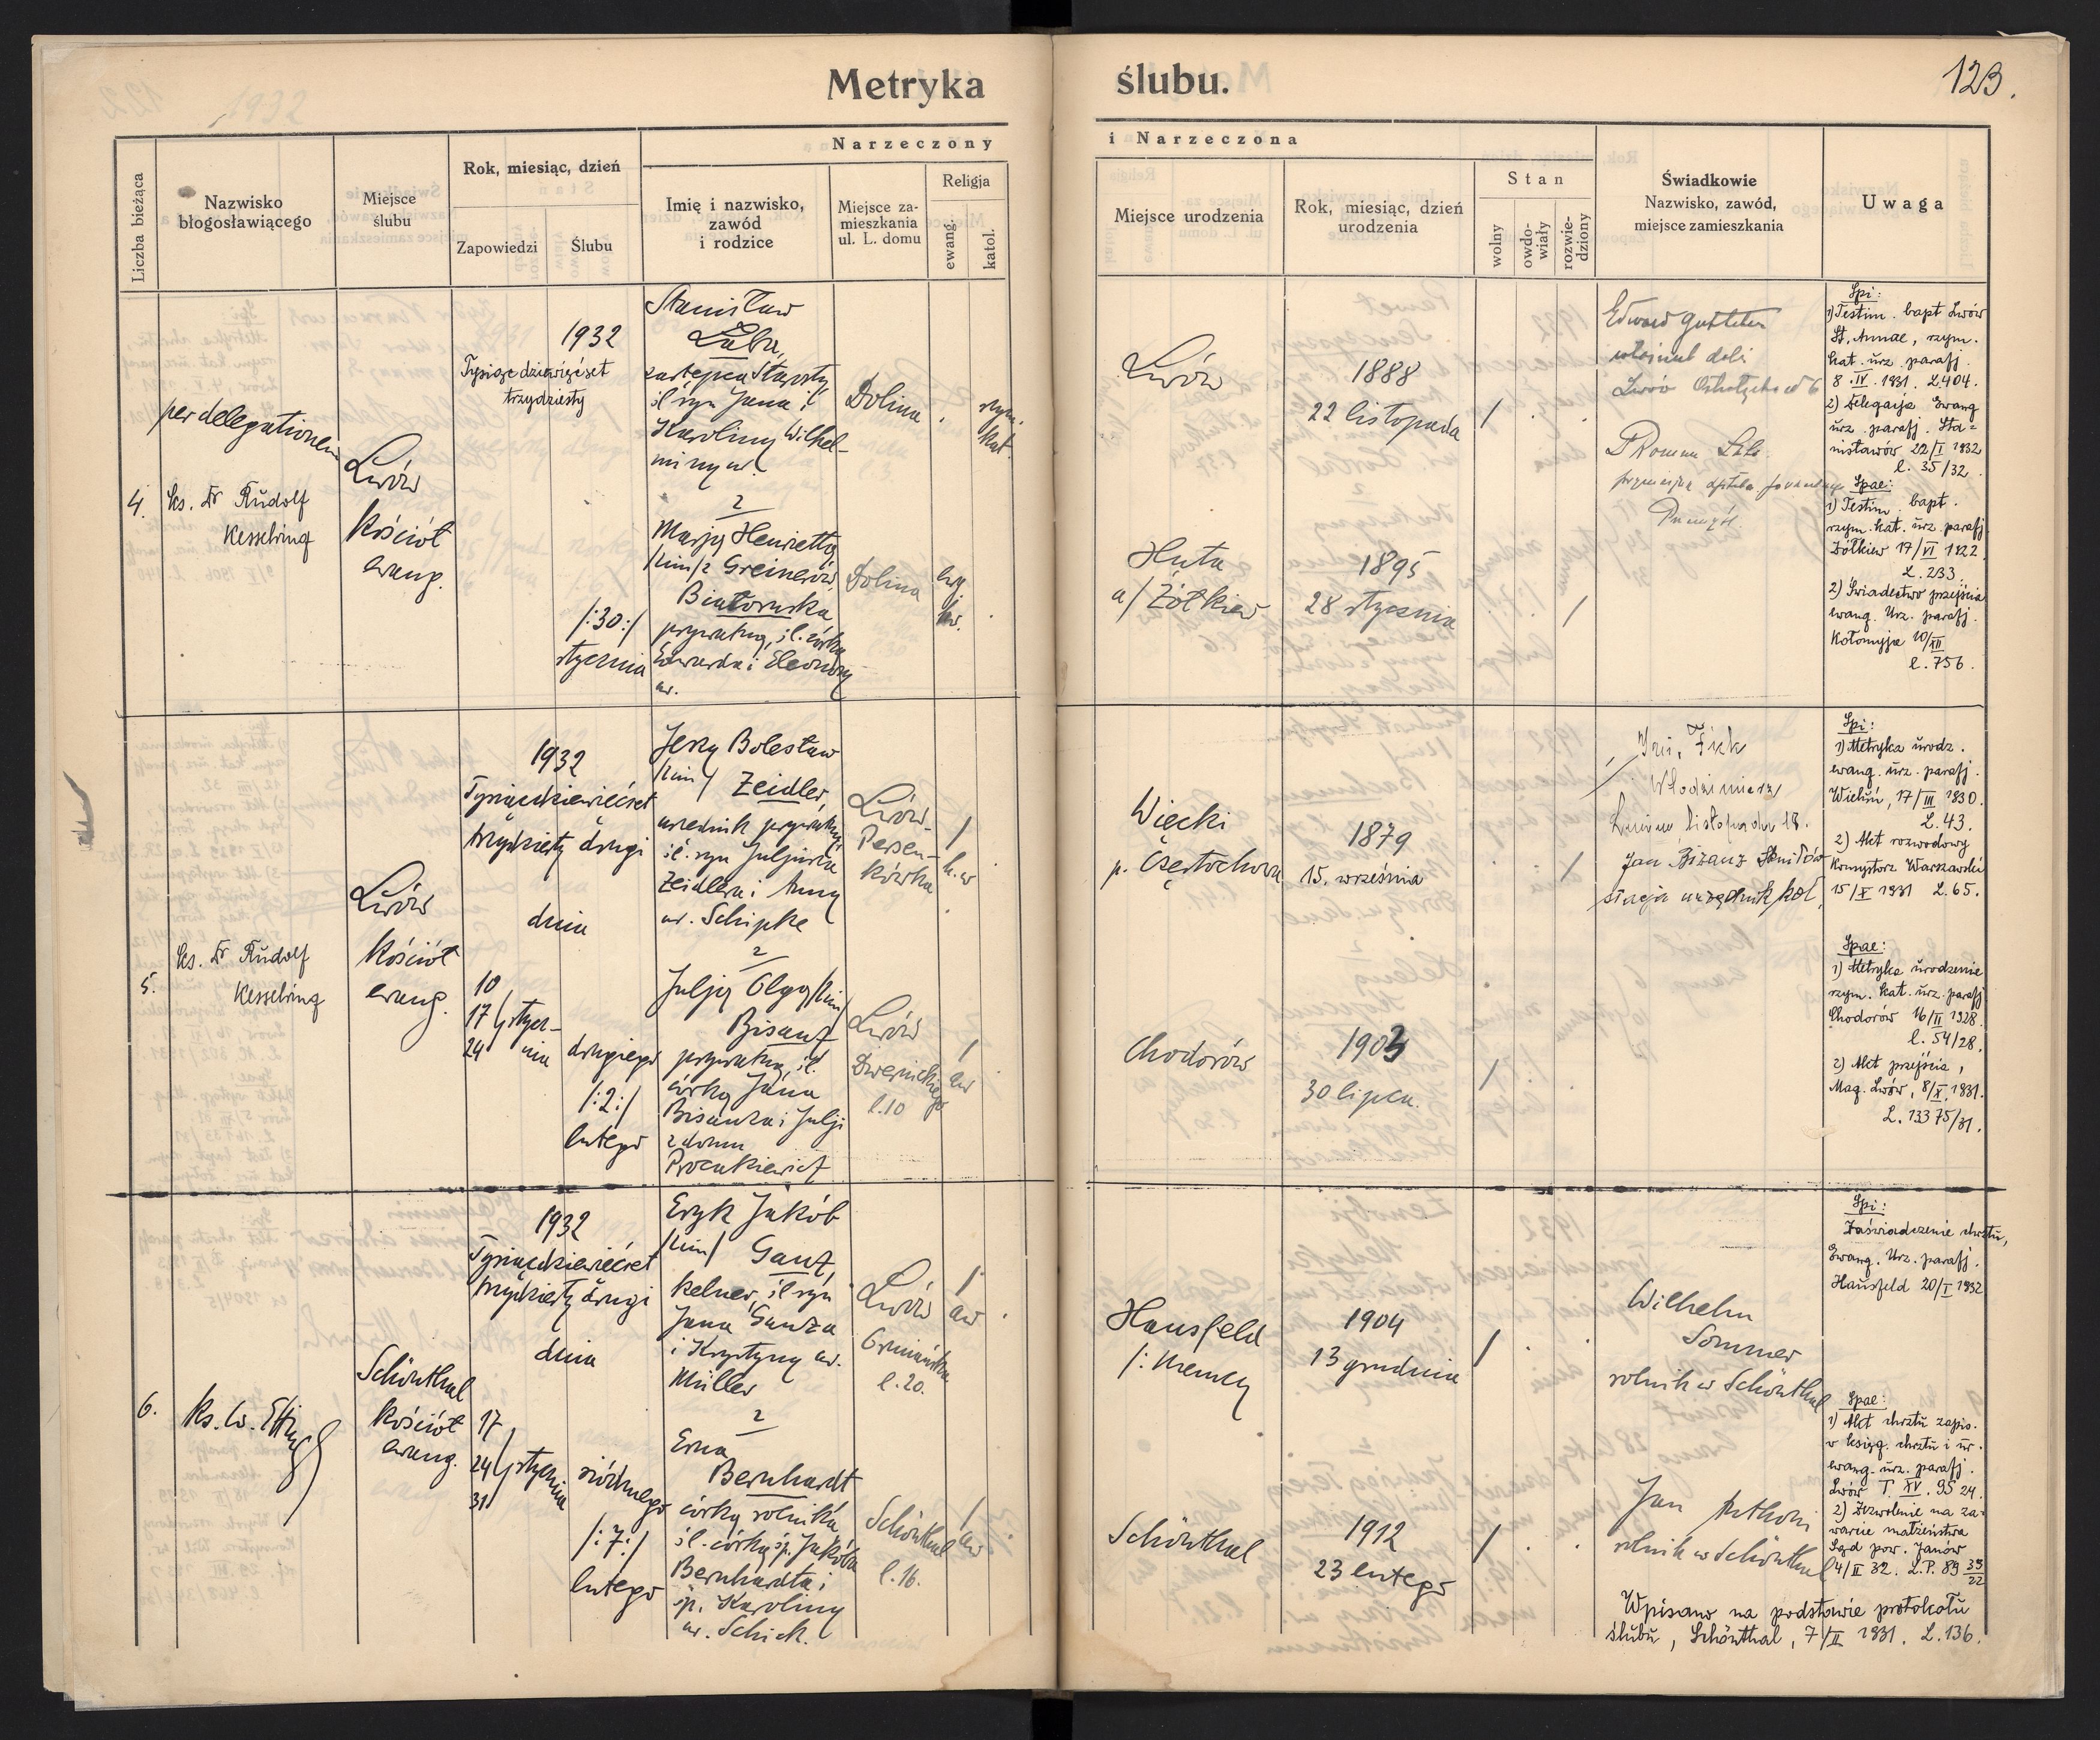 Metryka ślubu.
123.
1932
Liczba bieżąca
Nazwisko
błogosławiącego
Miejsce
ślubu
Rok, miesiąc, dzień
Zapowiedzi
Ślubu
Narzeczony
Imię i nazwisko,
zawód
i rodzice
Miejsce za-
mieszkania
ul. L. domu
Religja
ewang.
katol.
i Narzeczona
Miejsce urodzenia
Rok, miesiąc, dzień
urodzenia
Stan
wolny
owdo-
wiały
rozwie-
dziony
Świadkowie
Nazwisko, zawód,
miejsce zamieszkania
Uwaga
4.
per delegationem
ks. Dr Rudolf
Kesselring
Lwów
Kościół
ewang.
1932
Tysiąc dziewięćset
trzydziesty
/:30:/
stycznia
Stanisław
Łuba,
zastępca Starosty
i syn Jana i
Karoliny Wilhel-
miny
z
Marją Henriettą
/im/ z Greinerów
Białoruska
prywatną, śl. córką
Edwarda i Eleonory
Dolina
rzym.
kat.
Dolina
Lwów
1888
22 listopada
/
Huta
a/ Żółkiew
1895
28 stycznia
/
Edward
Lwów
Spi:
1) Testim. bapt Lwów
St. Annae, rzym.
kat. urz. parafj.
8.IV.1931. L.404.
2) Delegacja Ewang
urz. parafj. Sta=
nisławów 22/I 1932
l. 35/32.
Spae:
1) Testim. bapt.
rzym. kat. urz. parafj.
Żółkiew 17/VI 1922.
L. 233.
2) Świadectwo przejścia
ewang. Urz. parafj.
Kołomyja 10/XII
l. 756.
5.
ks. Dr Rudolf
Kesselring
Lwów
Kościół
ewang.
1932
Tysiącdziewięćset
trzydziesty drugi
dnia
10
17 stycz-
24 nia
drugiego
/:2:/
lutego
Jerzy Bolesław
/im/ Zeidler,
urzędnik prywatny
śl. syn Juljusza
Zeidlera i Anny
ur. Schipke
z
Julją Olgą /im/
Bisanz
prywatną, śl.
córką Jana
Bisanza i Julji
z domu
Procukiewicz
Lwów-
Persen-
kówka
/
Lwów
Dwernickiego
l.10
/
Więcki
p. Częstochowa
1879
15. września
/
Chodorów
1903
30 lipca.
/
Włodzimierz
Jan Bisanz
stacja urzędnik kol.
Spi:
1) Metryka urodz.
ewang. urz. parafj.
Wieluń, 17/III 1930.
L. 43.
2) Akt rozwodowy
Konsystorz Warszawski
15/X 1931 L. 65.
Spae:
1) Metryka urodzenie
rzym. kat. urz. parafj
Chodorów 16/II 1928.
l. 54/28.
2) Akt przejścia,
Mag. Lwów, 8/X. 1931.
L. 13375/31.
6.
Schönthal
Kościół
ewang.
1932
Tysiącdziewięćset
trzydziesty drugi
dnia
17
24 stycznia
31
siódmego
/:7:/
lutego
Eryk Jakób
/im/ Ganz,
kelner, śl. syn
Jana Ganza
i Krystyny ur.
Müller
z
Erną
Bernhardt
córką rolnika
śl. córką śp. Jakóba
Bernhardta i
śp. Karoliny
ur. Schick.
Lwów
Ormiańska
l.20.
/
Schönthal
l.16.
/
Hausfeld
/: Niemcy
1904
13 grudnia
/
Schönthal
1912
23 lutego
/
Wilhelm
Sommer
rolnik w Schönthal
Jan
rolnik w Schönthal
Spi:
Zaświadczenie chrztu,
Ewang. Urz. parafj.
Hausfeld 20/I 1932
Spae:
1) Akt chrztu zapis.
w księg. chrztu i ur.
ewang. urz. parafj.
Lwów T. XV. 95 24.
2) Zezwolenie na za-
warcie małżeństwa
Sąd pow. Janów
4/II 32. L.P. 89 39/22
Wpisano na podstawie protokołu
ślubu, Schönthal, 7/II 1931. L. 136.